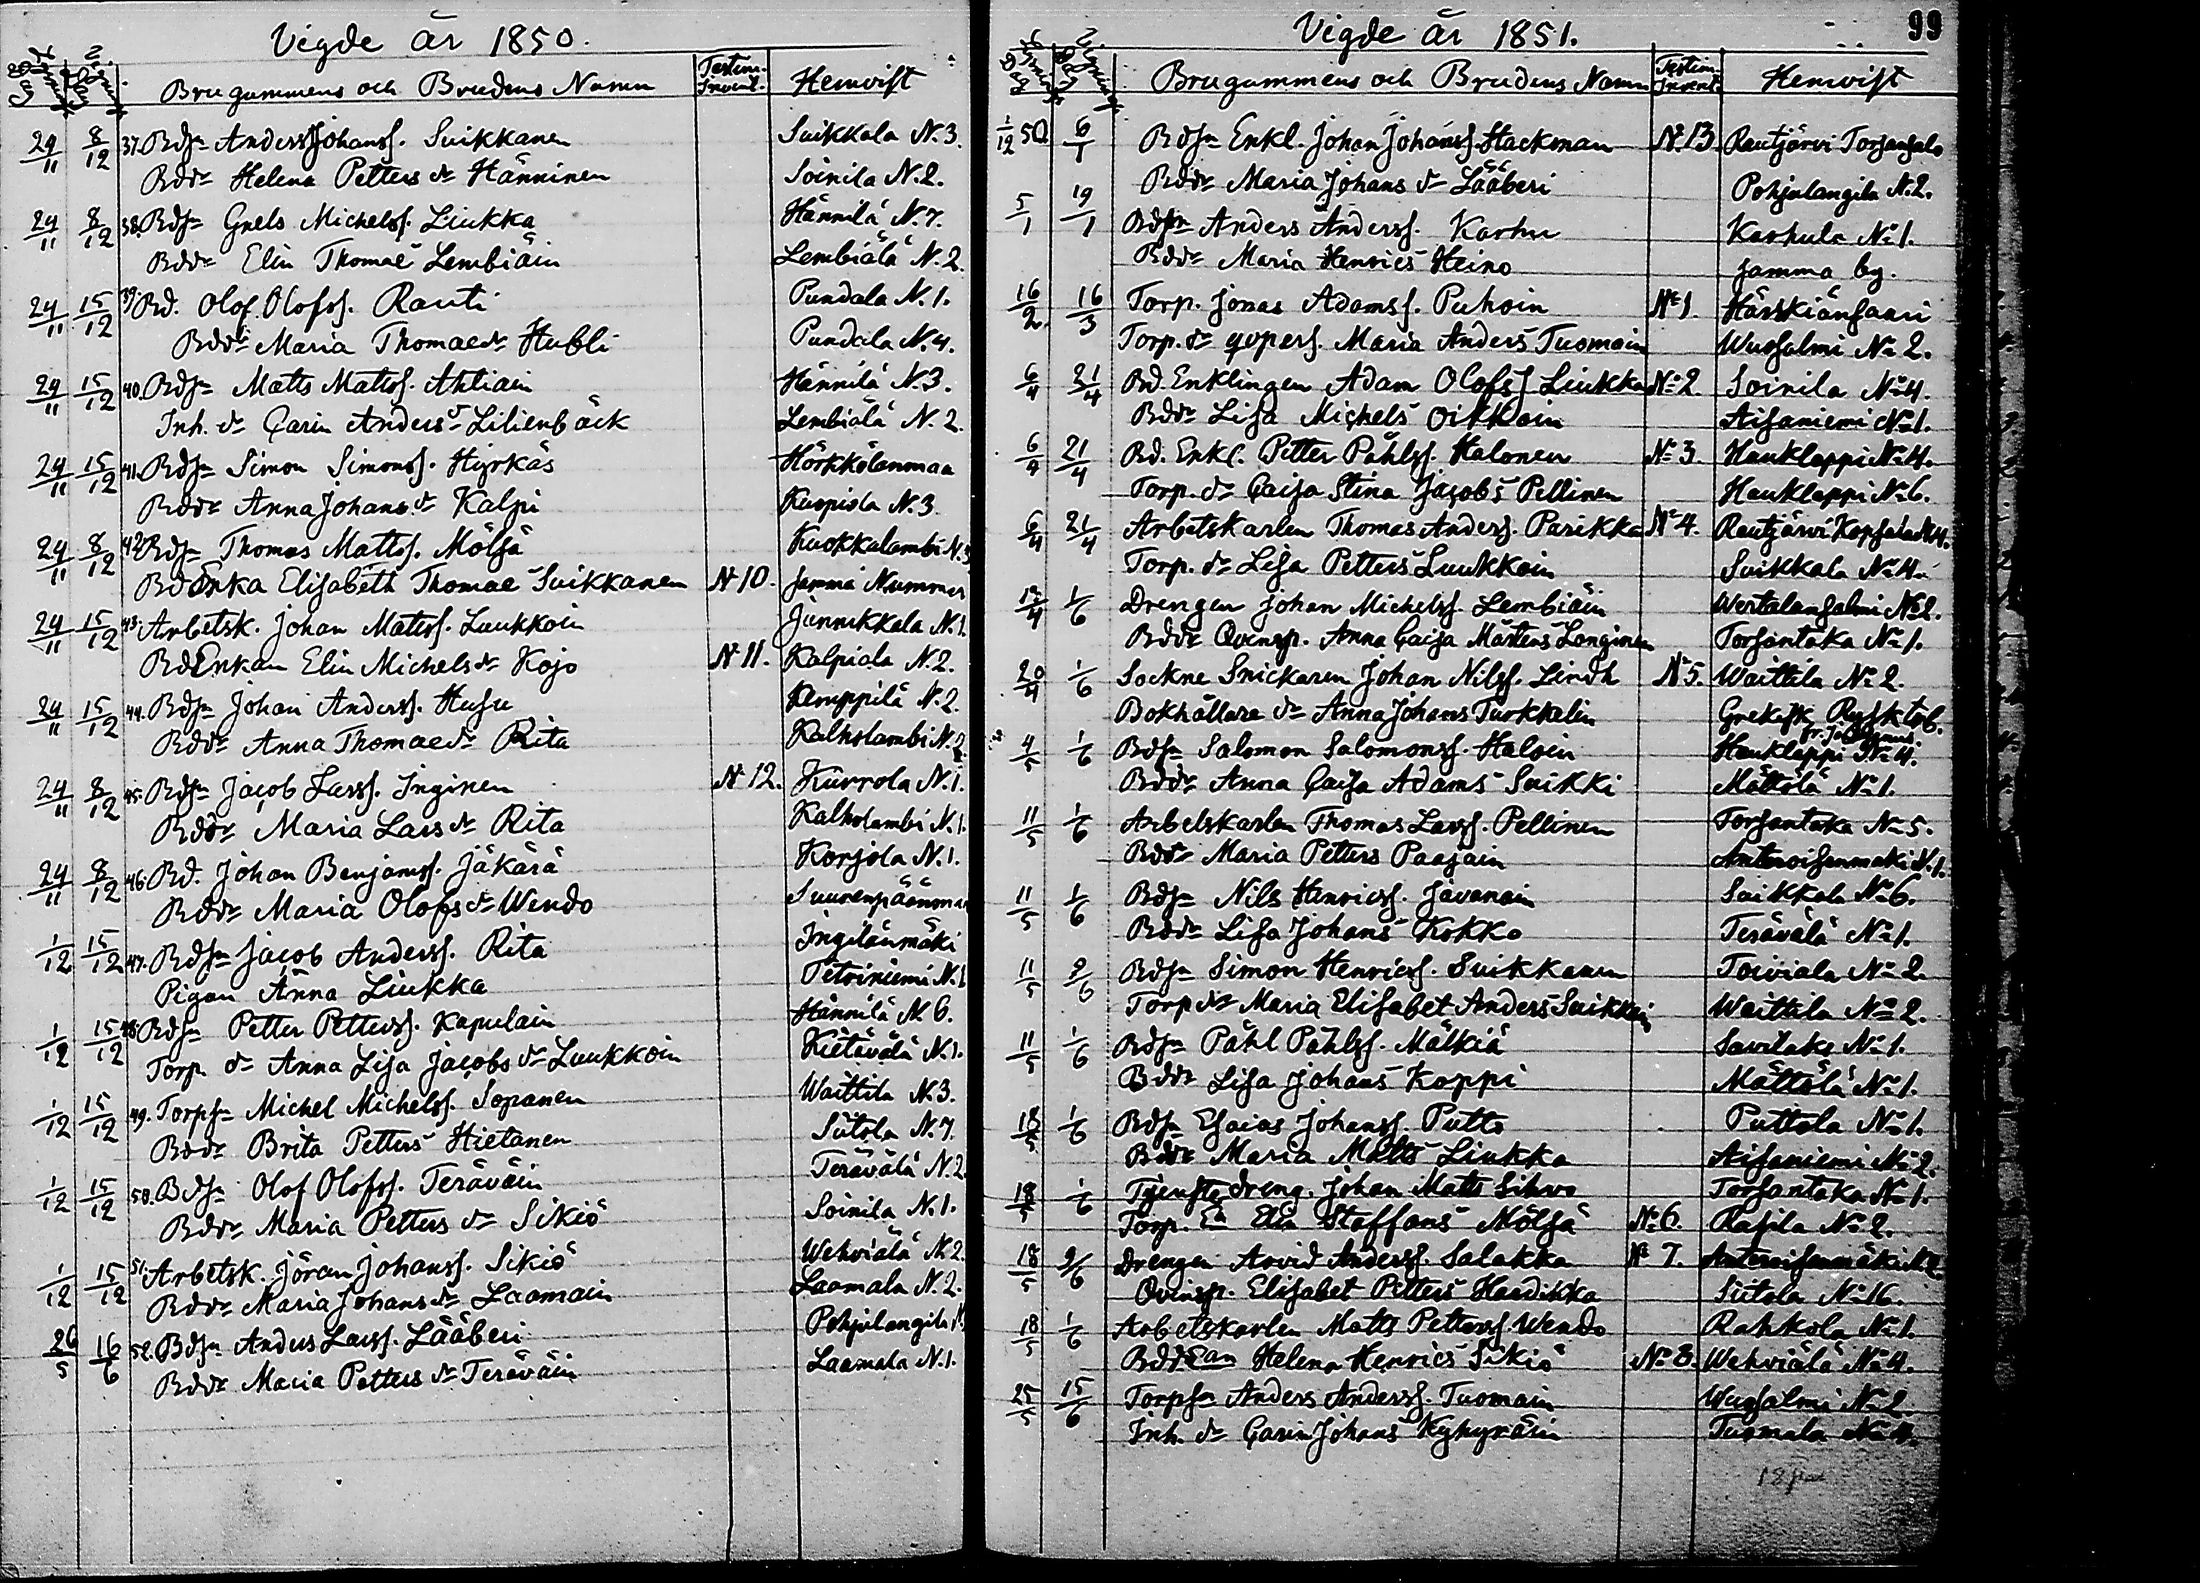 Vigde år 1850.
Brugummens och Brudens Namn Testim. Invent. Hemvist
24/11 8/12 37. Bds:n Anders Johanss. Suikkanen Suikkala N. 3.
Bdd:r Helena Petters d:r Hänninen Soinila N. 2.
24/11 8/12 38. Bds:n Grels Michelss. Liukka Hännilä N. 7.
Bdd:r Elin Thomae Lembiäin Lembiälä N. 2.
24/11 15/12 39. Bd. Olof Olofss. Rauti Pundala N. 1.
Bdd:r Maria Thomae d:r Hubli Pundala N. 4.
24/11 15/12 40. Bds:n Matts Mattss. Ahtiain Hännilä N. 3.
Inh. d:r Carin Anders d:r Lilienbäck Lembiälä N. 2.
24/11 15/12 41. Bds:n Simon Simonss. Hyrkäs Hörkkölänmaa
Bdd:r Anna Johans d:r Kalpi Kuopiola N. 3.
24/11 8/12 42. Bds:n Thomas Mattss. Mölsä Kuokkalambi N. 3
Bd Enka Elisabeth Thomae Suikkanen N:10. Samma Nummer
24/11 15/12 43. Arbetsk. Johan Matss. Luukkoin Junnikkala N. 1.
Bd Enkan Elin Michels d:r Kojo N:11. Kalpiala N. 2.
24/11 15/12 44. Bds:n Johan Anderss. Husu Kemppilä N. 2.
Bdd:r Anna Thomae d:r Rita Kalholambi N. 2
24/11 8/12 45. Bds:n Jacob Larss. Inginen N:12. Kurrola N. 1.
Bdd:r Maria Lars d:r Rita Kalholambi N. 1.
24/11 8/12 46. Bd. Johan Benjamss. Jäkärä Korjola N. 1.
Bdd:r Maria Olofs d:r Wendo Suurenpäänmaa
1/12 15/12 47. Bds:n Jacob Anderss. Rita Ingilänmäki
Pigan Anna Liukka Petriniemi N. 1
1/12 15/12 48. Bds:n Petter Petterss. Kapulain Hännilä N. 6.
Torp. d:r Anna Lisa Jacobs d:r Luukkoin Kietävälä N. 1.
1/12 15/12 49. Torps:n Michel Michelss. Sopanen Waittila N. 3.
Bdd:r Brita Petters Hietanen Sutola N. 7.
1/12 15/12 50. Bds:n Olof Olofss. Teräväin Terävälä N. 2
Bdd:r Maria Petters d:r Sikiö Soinila N. 1.
1/12 15/12 51. Arbetsk. Jöran Johanss. Sikiö Wehviälä N. 2
Bdd:r Maria Johans d:r Laamain Laamala N. 2.
26/5 16/6 52. Bds:n Anders Larss. Lääberi Pohjalangila N.
Bdd:r Maria Petters d:r Teräväin Laamala N. 1.
Vigde år 1851. 99
Brugummens och Brudens Namn Testim. Invent. Hemvist
1/12 50. 6/1 Bds:n Enkl. Johan Johanss. Hackman N:13. Rautjärvi Torsansalo
Bdd:r Maria Johans d:r Lääberi Pohjalangila N. 2.
5/1 19/1 Bds:n Anders Anderss. Karhu Karhula N:1.
Bdd:r Maria Henrics Heino Samma by.
16/2 16/3 Torp. Jonas Adamss. Puhoin N:1. Härskiänsaari
Torp. d:r qvpers. Maria Anders Tuomain Wuosalmi N:2.
6/4 21/4 Bd. Enklingen Adam Olofss. Liukka N:2. Soinila N:4.
Bdd:r Lisa Michels Oikkoin Aisaniemi N:1.
6/4 21/4 Bd. Enkl. Petter Påhlss. Halonen N:3. Hauklappi N:4.
Torp. d:r Caisa Stina Jacobs Pellinen Hauklappi N:6.
6/4 21/4 Arbetskarlen Thomas Anderss. Parikka N:4. Rautjärvi Kopsala N:4.
Torp. d:r Lisa Petters Luukkoin Suikkala N:4.
1/6 Drengen Johan Michelss. Lembiäin Wertalansalmi N:2.
Bdd:r Qvinsp. Anna Caisa Mårtens Longinen Torsantaka N:1.
20/4 1/6 Sockne Snickaren Johan Nilss. Lindh N:5. Waittila N:2.
Bokhållare d:r Anna Johans Turkkelin Grekisk Rysk
4/5 1/6 Bds:n Salomon Salomonss. Haloin Hauklappi N:4.
Bdd:r Anna Caisa Adams Suikki Mättölä N:1.
11/5 1/6 Arbetskarlen Thomas Larss. Pellinen Torsantaka N:5.
Bdd:r Maria Petters Paajain Anteroisenmäki N. 1.
11/5 1/6 Bds:n Nils Henricss. Javanain Suikkala N:6.
Bdd:r Lisa Johans Kokko Terävälä N:1.
11/5 9/6 Bds:n Simon Henricss. Suikkanen Toiviala N:2.
Torp d:r Maria Elisabet Anders Suikkain Waittila N:2.
11/5 1/6 Bds:n Påhl Påhlss. Mälkiä Savilako N:1.
Bdd:r Lisa Johans Koppi Mättölä N:1.
18/5 1/6 Bds:n Esaias Johanss. Putto Puttola N:1.
Bdd:r Maria Matts Liukka Aisaniemi N:2.
18/5 1/6 Tjenste dreng. Johan Matts Sihvo Torsantaka N:1.
Torp. E:a Elin Staffans Mölsä N:6. Rasila N:2.
18/5 9/6 Drengen Arvid Anderss. Salakka N:7. Anteroisenmäki N:2.
Qvinsp. Elisabet Petters Haadikka Siitola N:16.
18/5 1/6 Arbetskarlen Matts Petterss Wendo Rahkola N:1.
Bdd Ean Helena Henrics Sikiö N:8. Wehviälä N:4.
25/5 15/6 Torps:n Anders Anderss. Tuomain Wuosalmi N:2
Inh. d:r Carin Johans Kyhyräin Tuomala N:4.
18 par